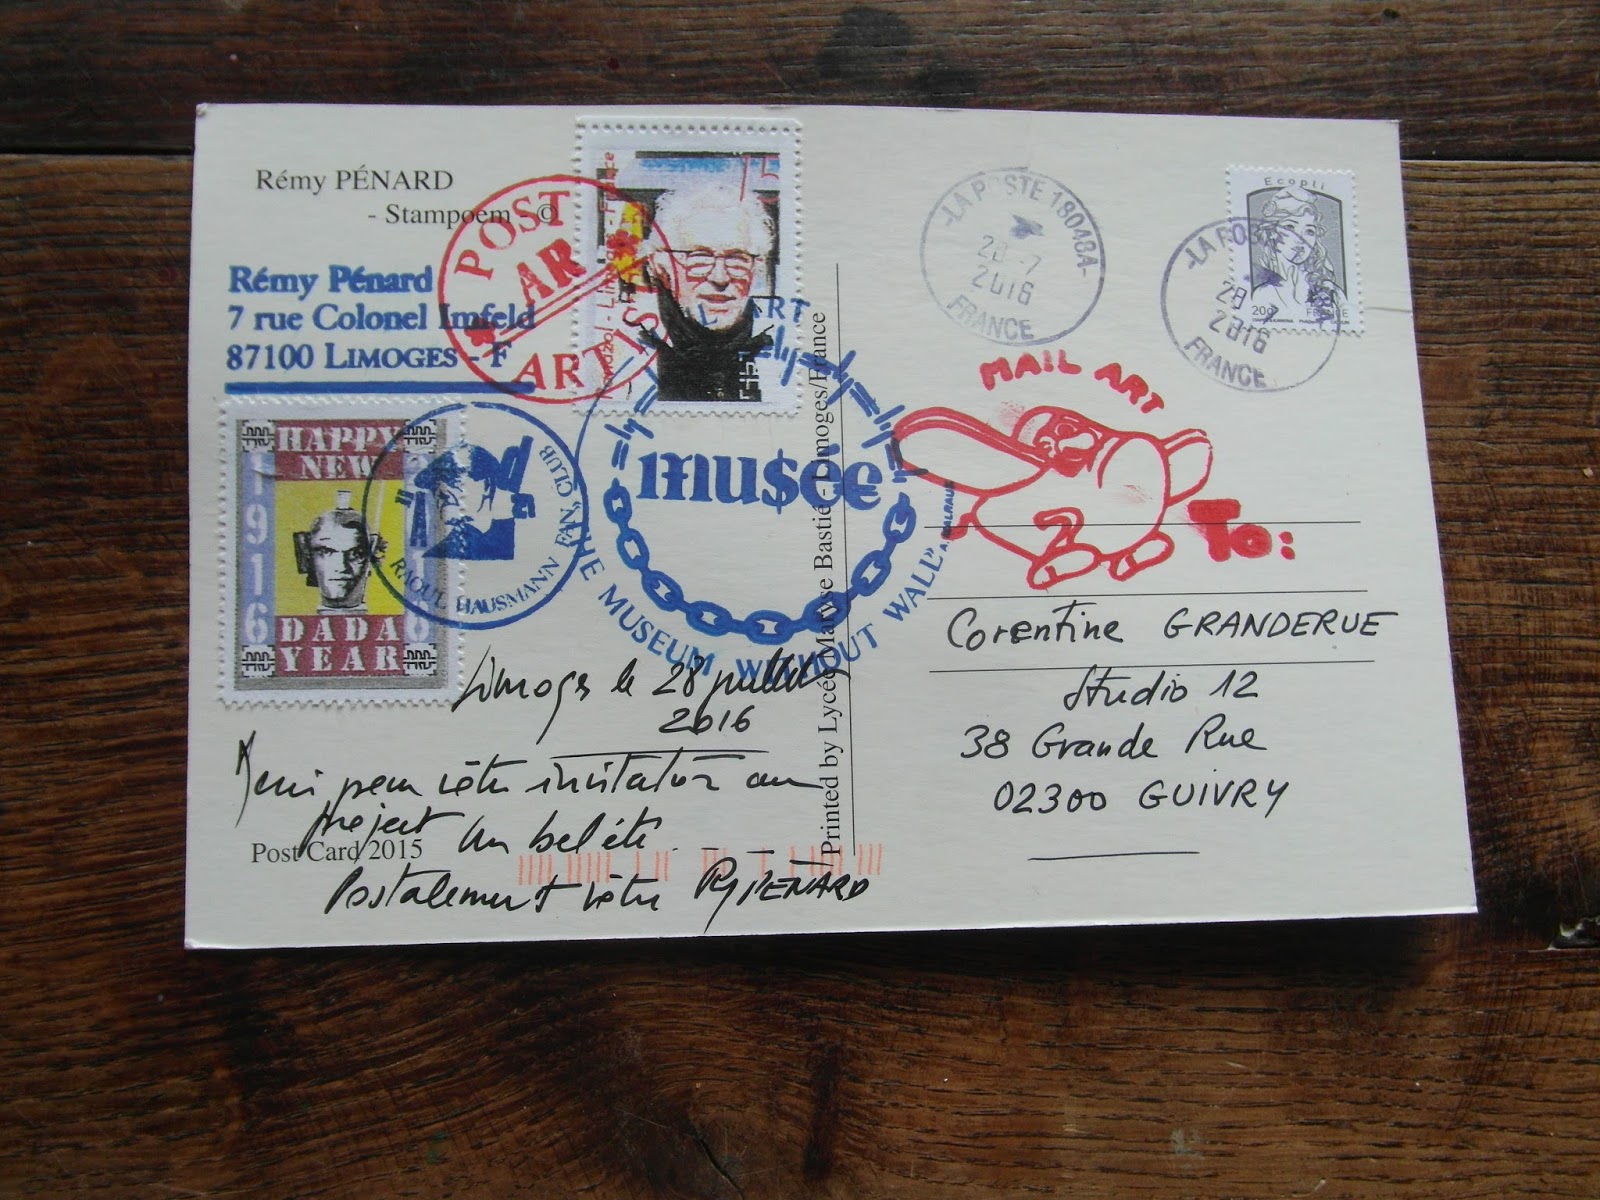 Rémy PÉNARD
- Stampoem - ©
Rémy Pénard
7 rue Colonel Imfeld
87100 LIMOGES - F
POST
AR
ARTIS
15
France
HAPPY
NEW
1916
DADA
YEAR
RAOUL HAUSMANN FAN CLUB
ART
musée
THE MUSEUM WITHOUT WALL"
Limoges le 28 juillet
2016
Merci pour votre invitation au
project
un bel été.
Post Card 2015
Postalement vôtre PÉNARD
Printed by Lycée Maryse Bastié - Limoges/France
-LA POSTE 18048A-
28-7
2016
FRANCE
Ecopli
20g
FRANCE
-LA POSTE
28-7
2016
FRANCE
MAIL ART
To:
Corentine GRANDERUE
Studio 12
38 Grande Rue
02300 GUIVRY